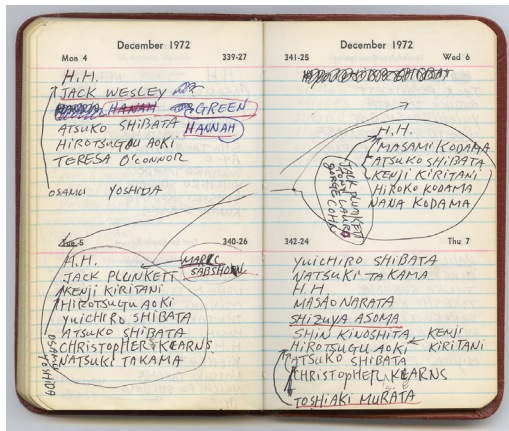 December 1972
Mon 4 339-27
H.H.
JACK WESLEY
HANAH GREEN
ATSUKO SHIBATA HANNAH
HIROTSUGU AOKI
TERESA O'CONNOR
OSAMU YOSHIDA
Tue 5 340-26
H.H. MARK
JACK PLUNKETT
KENJI KIRITANI
HIROTSUGU AOKI
YUICHIRO SHIBATA
ATSUKO SHIBATA
CHRISTOPHER KEARNS
NATSUKI TAKAMA
OSAMU YOSHIDA
December 1972
341-25 Wed 6
H.H.
MASAMI KODAMA
ATSUKO SHIBATA
KENJI KIRITANI
HIROKO KODAMA
NANA KODAMA
JACK PLUNKETT
TONY LAURO
GEORGE COHN
342-24 Thu 7
YUICHIRO SHIBATA
NATSUKI TAKAMA
H.H
MASAO NARATA
SHIZUYA ASOMA
SHIN KINOSHITA KENJI
HIROTSUGU AOKI KIRITANI
ATSUKO SHIBATA
CHRISTOPHER KEARNS
TOSHIAKI MURATA